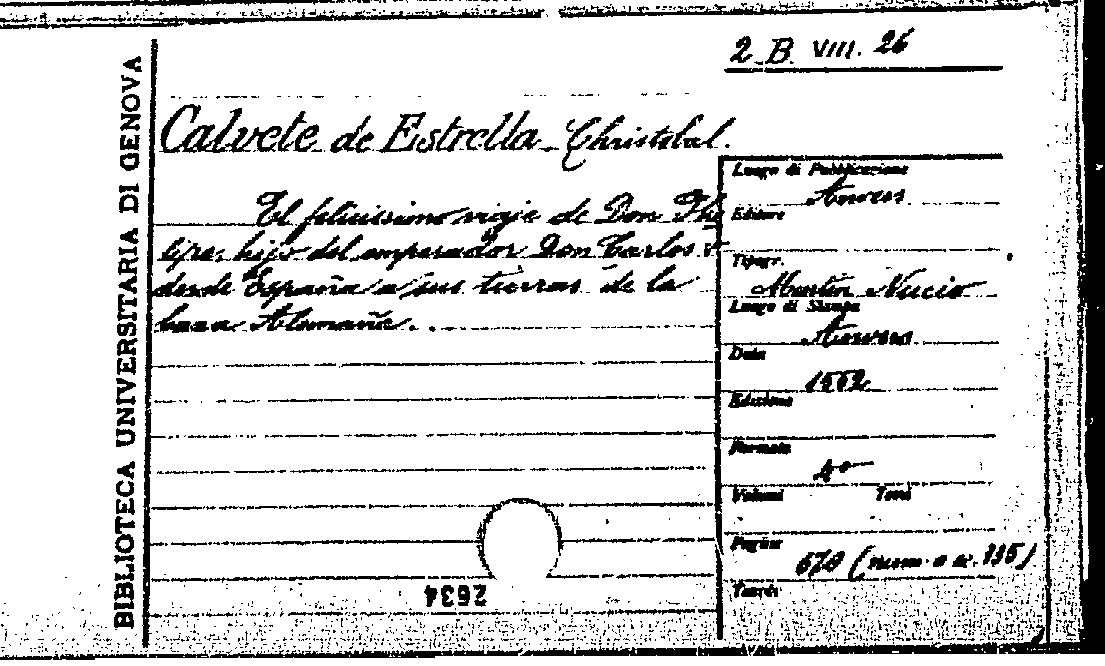 2 B. VIII. 26
BIBLIOTECA UNIVERSITARIA DI GENOVA
Calvete de Estrella Christobal.
El felicissimo viaje de Don Phe
lipe, hijo del emperador Don Carlos
desde España a sus tierras de la
baxa Alemaña...
Luogo di Pubblicazione
Anvers
Editore
Tipogr.
Martin Nucio
Luogo di Stampa
Anvers
Data
1552
Edizione
Formato
4º
Volumi Tomi
Pagine
670 (num. a c. 335)
Tavole
2634